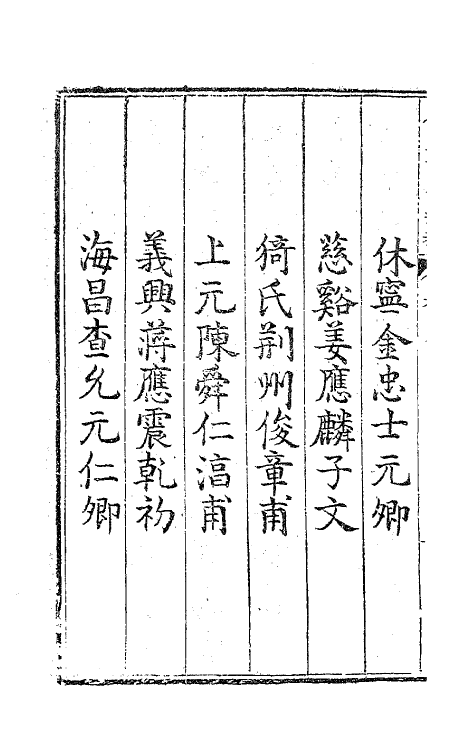 休寧金忠士元卿
慈谿姜應麟子文
猗氏荆州俊章甫
上元陳舜仁濇甫
義興蔣應震乾初
海昌查允元仁卿